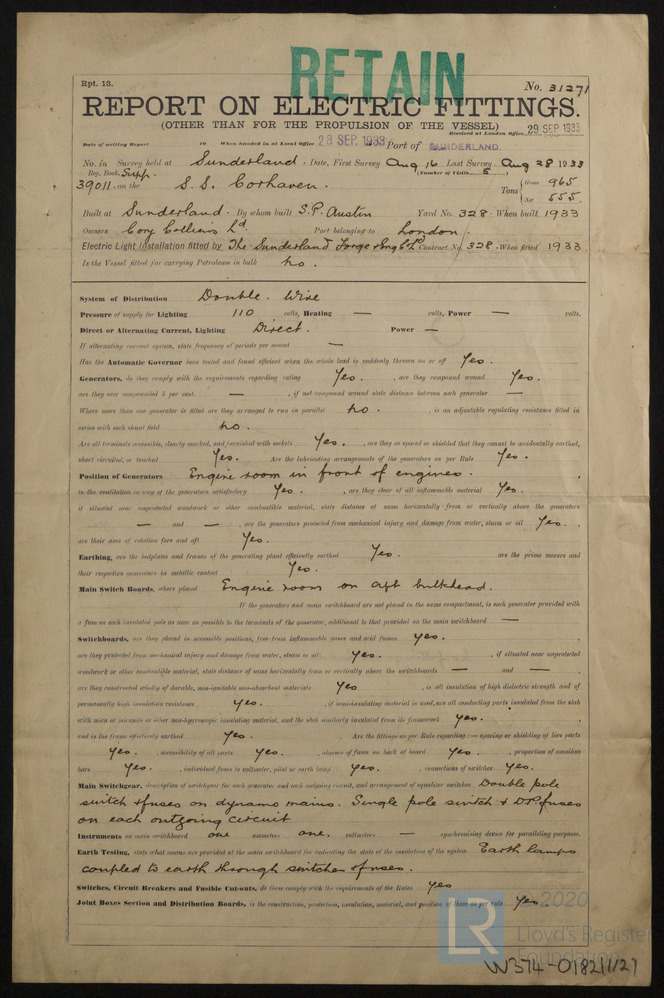 RETAIN
Rpt. 13.
No. 31271
REPORT ON ELECTRIC FITTINGS.
(OTHER THAN FOR THE PROPULSION OF THE VESSEL)
Received at London Office 29 SEP 1933
Date of writing Report 19 When handed in at Local Office 28 SEP. 1933 Port of SUNDERLAND.
No. in Survey held at Sunderland. Date, First Survey Aug 16 Last Survey Aug 28 1933
Reg. Book. Supp. (Number of Visits 8)
39011 on the S.S. Corhaven. Tons { Gross 965
Net 555
Built at Sunderland. By whom built S.P. Austin Yard No. 328. When built 1933
Owners Cory Colliers Ld. Port belonging to London
Electric Light Installation fitted by The Sunderland Forge & Eng Co Ld Contract No. 328. When fitted 1933
Is the Vessel fitted for carrying Petroleum in bulk No.
System of Distribution Double. Wire
Pressure of supply for Lighting 110 volts, Heating — volts, Power — volts.
Direct or Alternating Current, Lighting Direct. Power —
If alternating current system, state frequency of periods per second —
Has the Automatic Governor been tested and found efficient when the whole load is suddenly thrown on or off Yes.
Generators, do they comply with the requirements regarding rating Yes. , are they compound wound Yes.
are they over compounded 5 per cent. — , if not compound wound state distance between each generator —
Where more than one generator is fitted are they arranged to run in parallel No. , is an adjustable regulating resistance fitted in
series with each shunt field No.
Are all terminals accessible, clearly marked, and furnished with sockets Yes. , are they so spaced or shielded that they cannot be accidentally earthed,
short circuited, or touched Yes. Are the lubricating arrangements of the generators as per Rule Yes.
Position of Generators Engine room in front of engines.
, is the ventilation in way of the generators satisfactory Yes. , are they clear of all inflammable material Yes.
if situated near unprotected woodwork or other combustible material, state distance of same horizontally from or vertically above the generators
— and — , are the generators protected from mechanical injury and damage from water, steam or oil Yes. ,
are their axes of rotation fore and aft Yes.
Earthing, are the bedplates and frames of the generating plant efficiently earthed Yes. are the prime movers and
their respective generators in metallic contact Yes.
Main Switch Boards, where placed Engine room on aft bulkhead.
If the generators and main switchboard are not placed in the same compartment, is each generator provided with
a fuse on each insulated pole as near as possible to the terminals of the generator, additional to that provided on the main switchboard —
Switchboards, are they placed in accessible positions, free from inflammable gases and acid fumes Yes. ,
are they protected from mechanical injury and damage from water, steam or oil Yes. , if situated near unprotected
woodwork or other combustible material, state distance of same horizontally from or vertically above the switchboards — and — ,
are they constructed wholly of durable, non-ignitable non-absorbent materials Yes , is all insulation of high dielectric strength and of
permanently high insulation resistance Yes. , if semi-insulating material is used, are all conducting parts insulated from the slab
with mica or micanite or other non-hygroscopic insulating material, and the slab similarly insulated from its framework Yes. ,
and is the frame effectively earthed Yes. Are the fittings as per Rule regarding:— spacing or shielding of live parts
Yes. , accessibility of all parts Yes. , absence of fuses on back of board Yes. , proportion of omnibus
bars Yes. , individual fuses to voltmeter, pilot or earth lamp Yes. , connections of switches Yes.
Main Switchgear, description of switchgear for each generator and each outgoing circuit, and arrangement of equalizer switches Double pole
switch & fuses on dynamo mains. Single pole switch & D.P. fuses
on each outgoing circuit
Instruments on main switchboard one ammeters one. voltmeters — synchronising device for paralleling purposes.
Earth Testing, state what means are provided at the main switchboard for indicating the state of the insulation of the system Earth lamps
coupled to earth through switches & fuses.
Switches, Circuit Breakers and Fusible Cut-outs, do these comply with the requirements of the Rules Yes
Joint Boxes Section and Distribution Boards, is the construction, protection, insulation, material, and position of these as per rule Yes.
© 2020
LR
Lloyd's Register
Foundation
W374-0182(1/2)